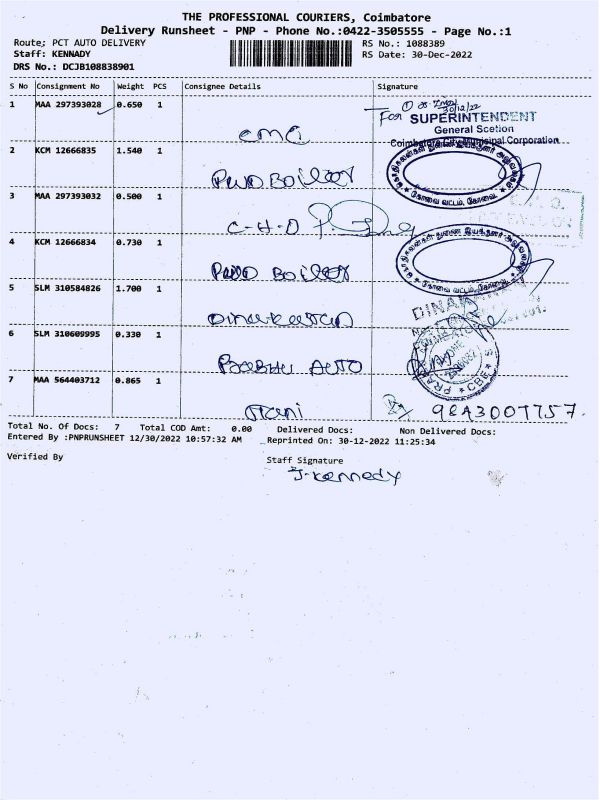 THE PROFESSIONAL COURIERS, Coimbatore
Delivery Runsheet - PNP - Phone No.:0422-3505555 - Page No.:1
Route; PCT AUTO DELIVERY
RS No.: 1088389
Staff: KENNADY
RS Date: 30-Dec-2022
DRS No.: DCJB108838901
S No Consignment No Weight PCS Consignee Details Signature
1 MAA 297393028 0.650 1
30/12/22
For SUPERINTENDENT
General Scetion
Coimbatore City Municipal Corporation
CMC
2 KCM 12666835 1.540 1
PWD BOILER
கோவை வட்டம், கோவை.
3 MAA 297393032 0.500 1
C-H-O
4 KCM 12666834 0.730 1
PWD BOILER
கோவை வட்டம், கோவை.
5 SLM 310584826 1.700 1
Dinakaran
6 SLM 310609995 0.330 1
CBE
AUTO
7 MAA 564403712 0.865 1
Mani
Total No. Of Docs: 7 Total COD Amt: 0.00 Delivered Docs: Non Delivered Docs:
Entered By :PNPRUNSHEET 12/30/2022 10:57:32 AM Reprinted On: 30-12-2022 11:25:34
Verified By
Staff Signature
J-Kennedy